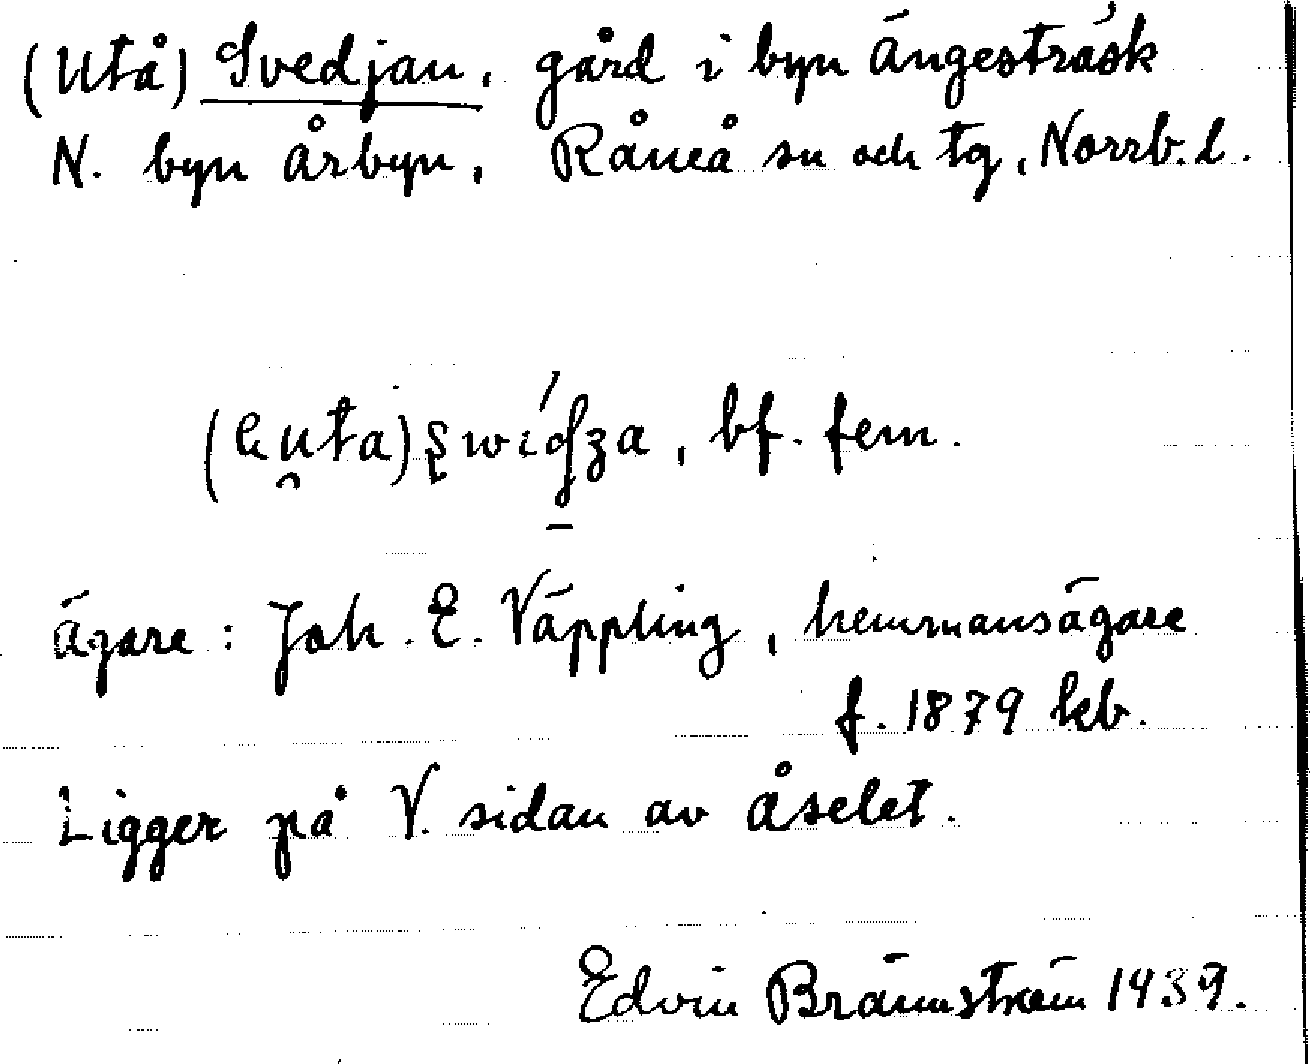 (Utå) Svedjan, gård i byn Ängesträsk
N. byn Årbyn, Råneå sn och tg, Norrb. l.
bf. fem.
Ägare: Joh. E. Väppling, hemmansägare
f. 1879 kb.
Ligger på V. sidan av åselet.
Edvin Brännström 1939.